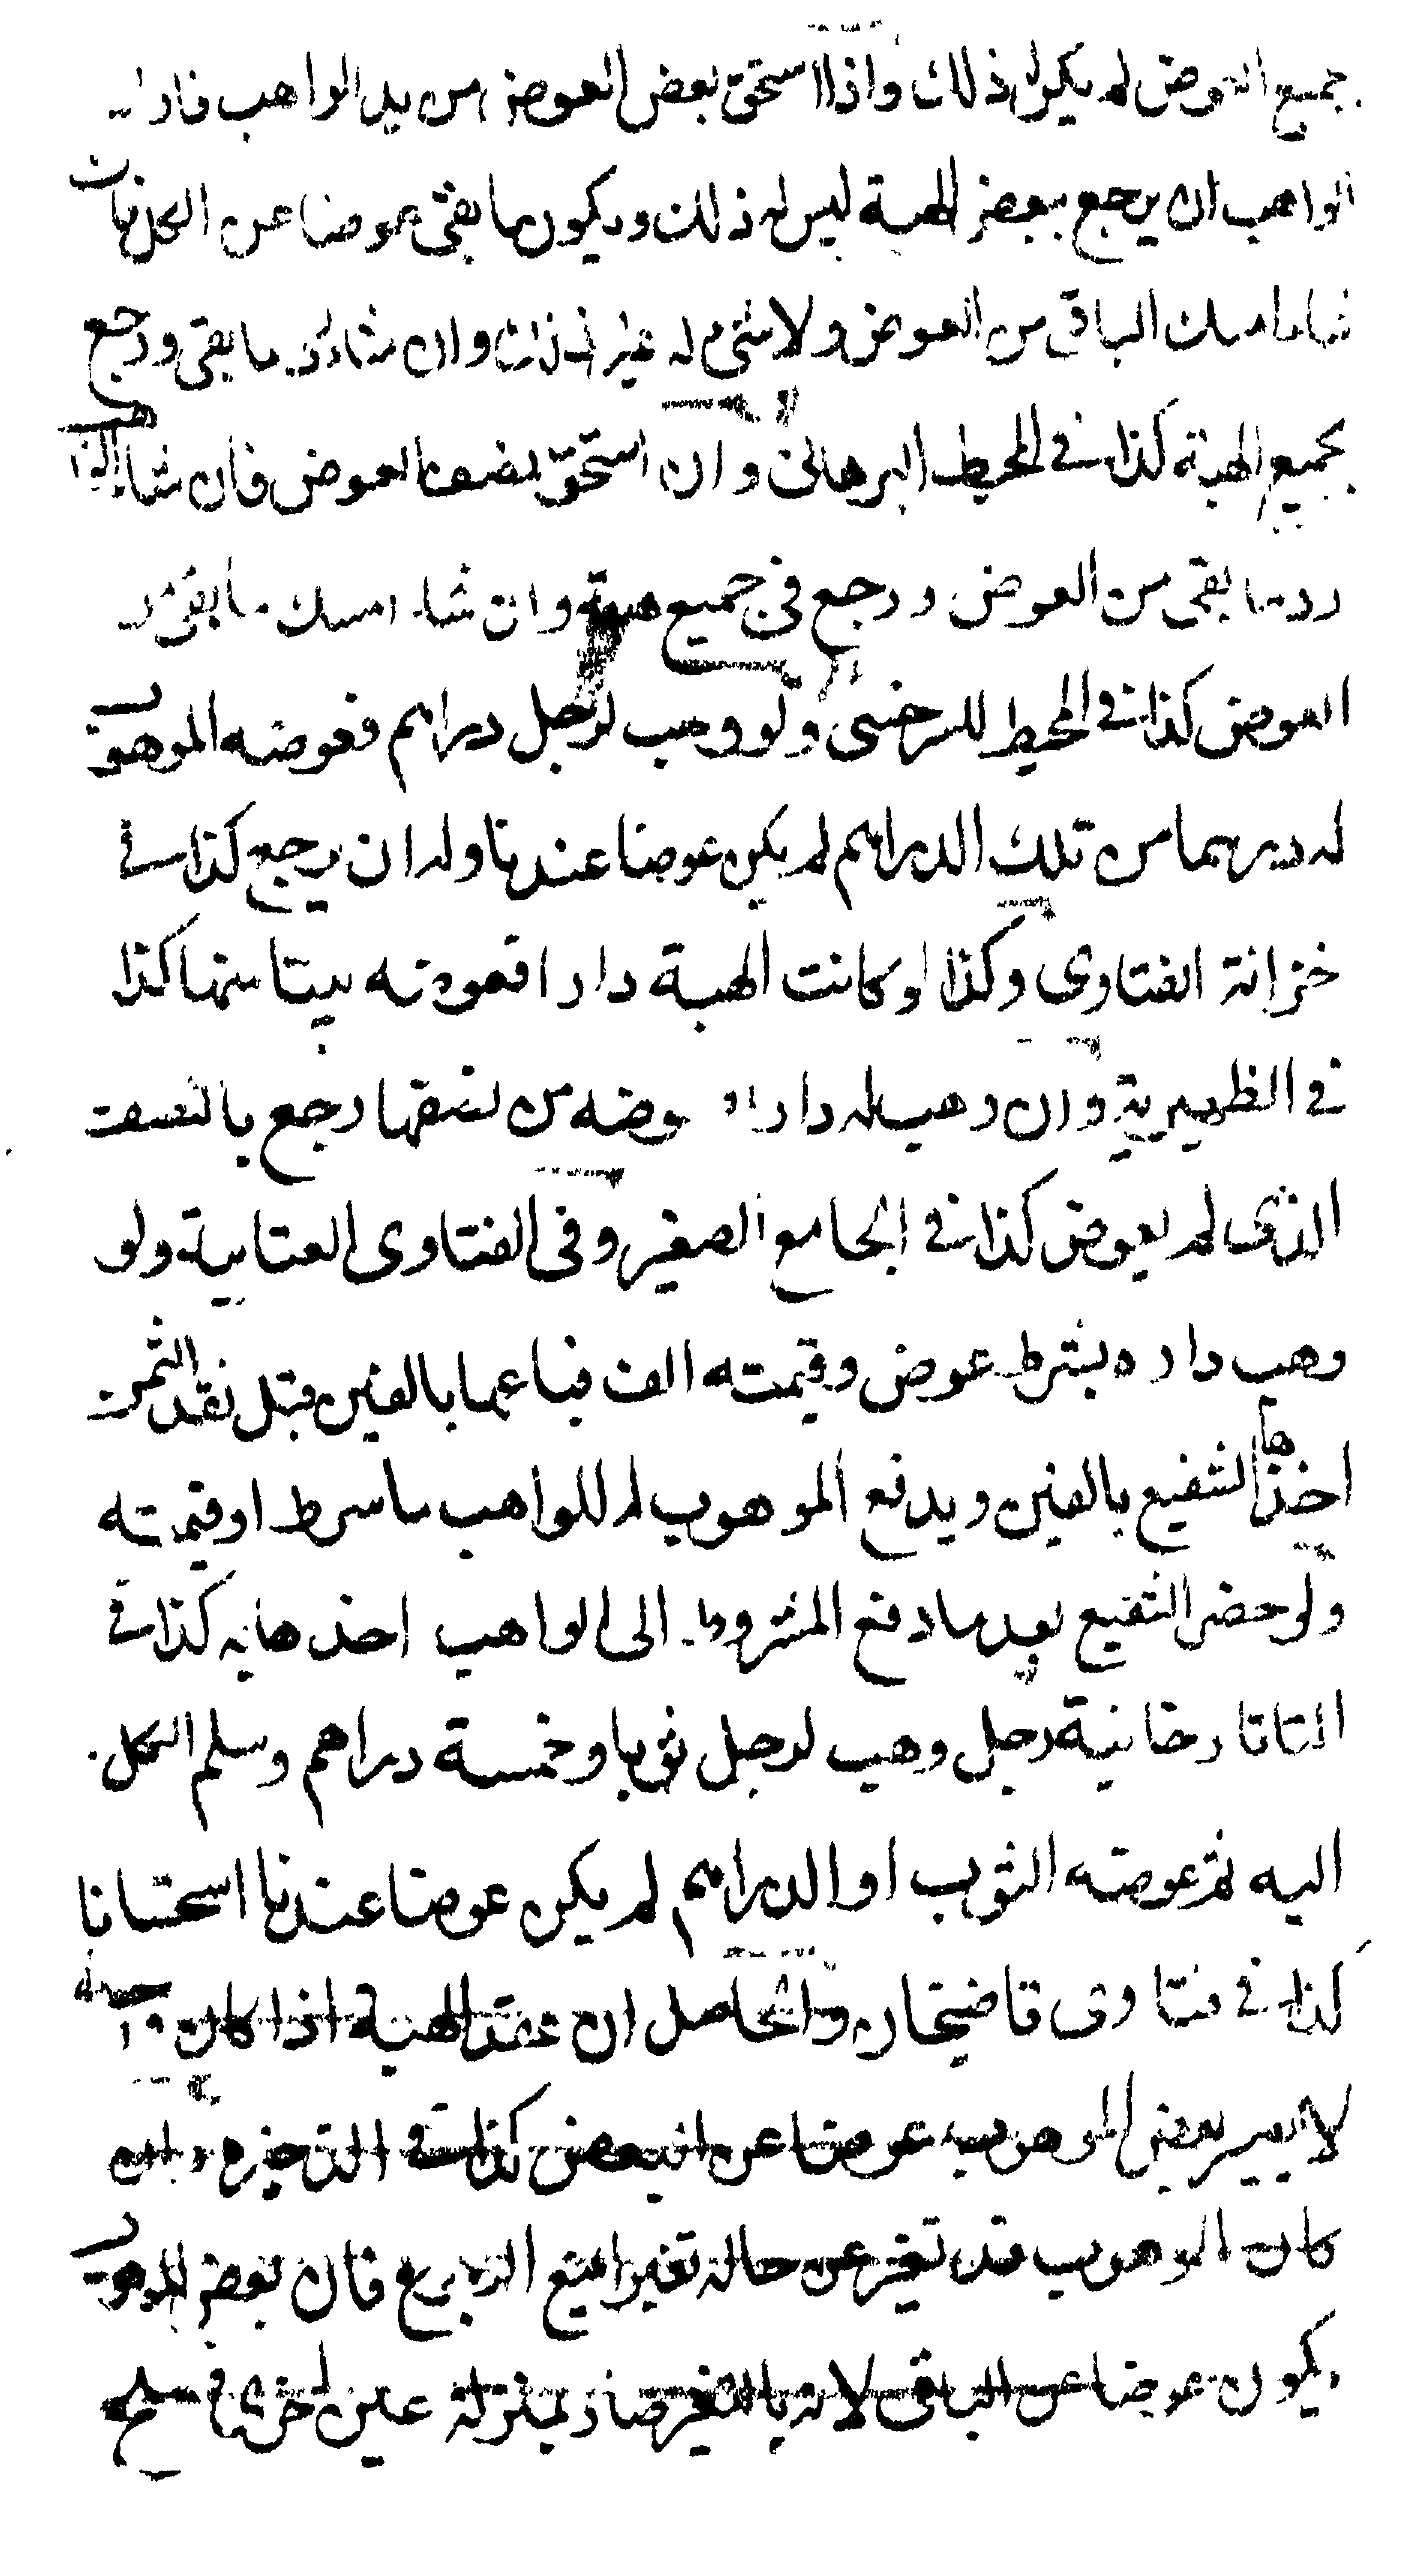 جميع العوض لم يكن له ذلك واذا استحق بعض العوض من يد الواهب فاراد
الواهب ان يرجع ببعض الهبة ليس له ذلك ويكون ما بقى عوضا عن الكل فان
شاء امسك الباقى من العوض ولا شىء له غير ذلك وان شاء رد ما بقى ورجع
بجميع الهبة كذا فى المحيط البرهانى وان استحق نصف العوض فان شاء الواهب
رد ما بقى من العوض ورجع فى جميع هبته وان شاء امسك ما بقى من
العوض كذا فى المحيط للسرخسى ولو وهب لرجل دراهم فعوضه الموهوب
له درهما من تلك الدراهم لم يكن عوضا عندنا وله ان يرجع كذا فى
خزانة الفتاوى وكذا لو كانت الهبة دارا فعوضه بيتا منها كذا
فى الظهيرية وان وهب له دارا وعوضه من نصفها رجع بالنصف
الذى لم يعوض كذا فى الجامع الصغير وفى الفتاوى العتابية ولو
وهب داره بشرط عوض وقيمته الف فباعها بالفين قبل نقد الثمن
اخذها الشفيع بالفين ويدفع الموهوب له للواهب ما شرط او قيمته
ولو حضر الشفيع بعد ما دفع المشروط الى الواهب اخذها به كذا فى
التاتارخانية رجل وهب لرجل ثوبا وخمسة دراهم وسلم الكل
اليه ثم عوضه الثوب او الدراهم لم يكن عوضا عندنا استحسانا
كذا فى فتاوى قاضيخان والحاصل ان عقد الهبة اذا كان واحدا
لا يصير بعض الموهوب عوضا عن البعض كذا فى الذخيرة وان
كان الموهوب قد تغير عن حاله تغيرا يمنع الرجوع فان بعض الموهوب
يكون عوضا عن الباقى لانه بالتغير صار بمنزلة عين اخرى فيصلح